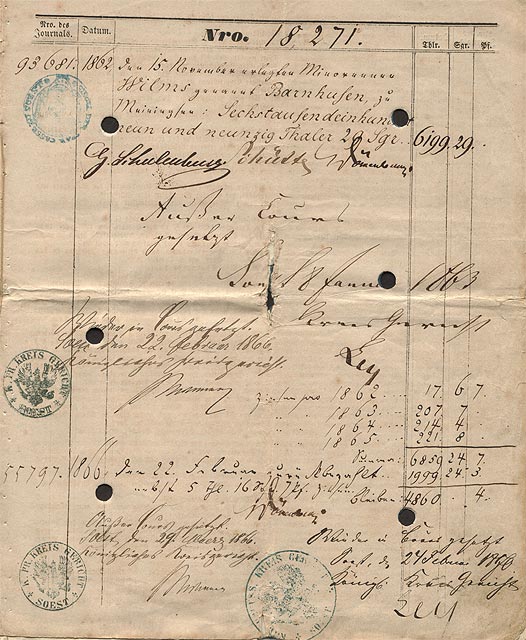 Nro. des Journals. Datum. Nro. 18271. Thlr. Sgr. Pf.
95681. 1862 den 15. November erlegten Minorennen
Wilms genannt Barnhusen, zu
Meiningsen: Sechstausendeinhundert
neun und neunzig Thaler 29 Sgr. 6199. 29.
Schulenburg
Außer Cours
gesetzt
Soest 8 Janu 1863
Kreis Gericht
Wieder in Cours gesetzt.
Soest den 22. Februar 1866.
Königliches Kreisgericht.
Ley
Zinsen pro 1862 17. 6 7.
1863 207 7
1864 214 4
1865 221 8
Summa 6859 24. 7.
55797. 1866 den 22. Februar zurückbezahlt 1999 24. 3
nebst 5 Thl. 16 Zinsen
bleiben 4860 4.
Außer Cours gesetzt.
Soest, den 29. März 1866.
Königliches Kreisgericht.
Wieder in Cours gesetzt
Soest, d. 24 Februar 1866
Königl. Kreis Gericht
Ley
K. PR. KREIS GERICHT
SOEST
K. PR. KREIS GERICHT
SOEST